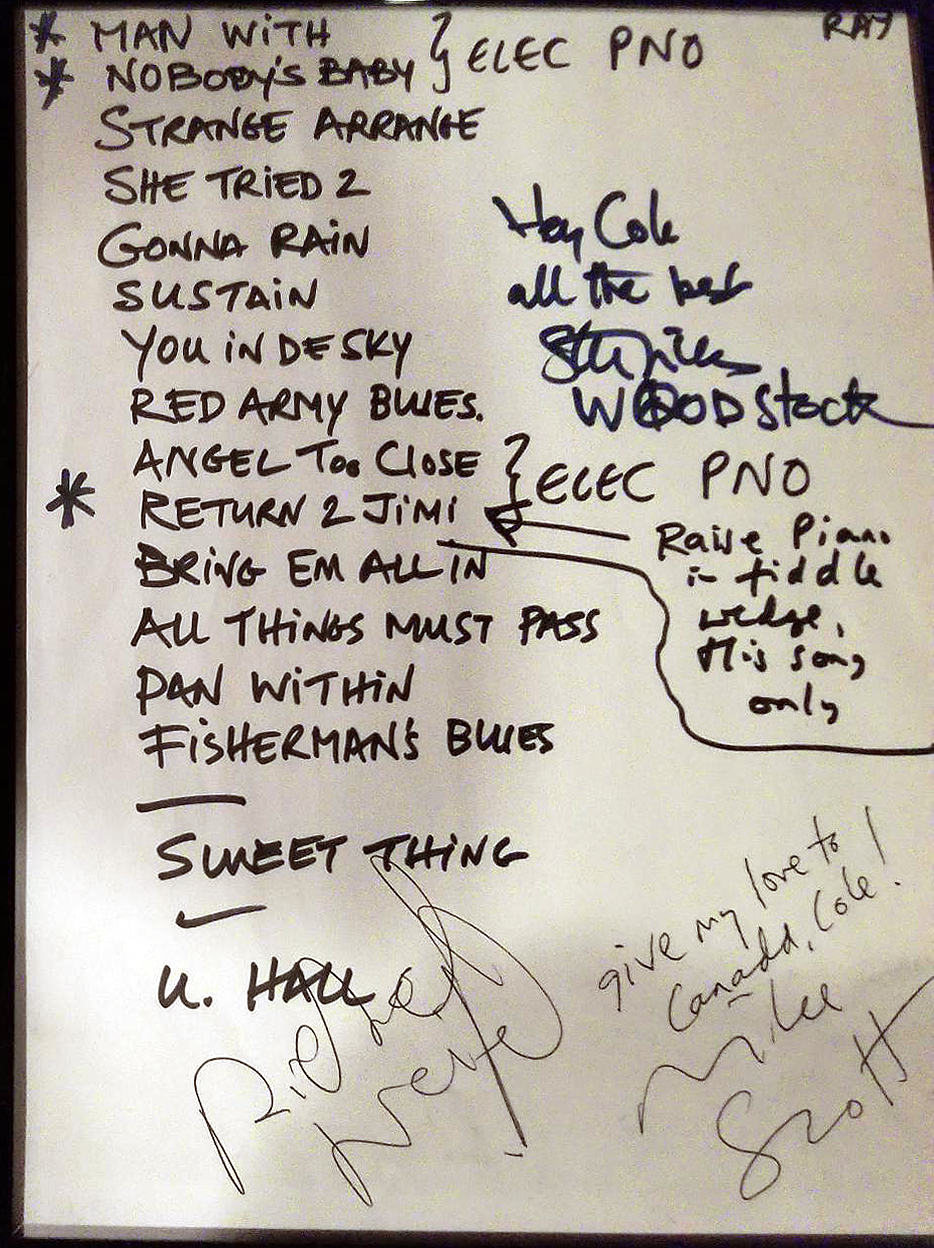 RAY
* MAN WITH
* NOBODY'S BABY
} ELEC PNO
STRANGE ARRANGE
SHE TRIED 2
GONNA RAIN
SUSTAIN
YOU IN DE SKY
RED ARMY BLUES.
ANGEL TOO CLOSE
* RETURN 2 JIMI
} ELEC PNO
BRING EM ALL IN
ALL THINGS MUST PASS
PAN WITHIN
FISHERMAN'S BLUES
SWEET THING
U. HALL
Hey Cole
all the best
Steve
WOODSTOCK
Raise Piano
in fiddle
wedge,
this song
only
give my love to
Canada, Cole!
Mike
Scott